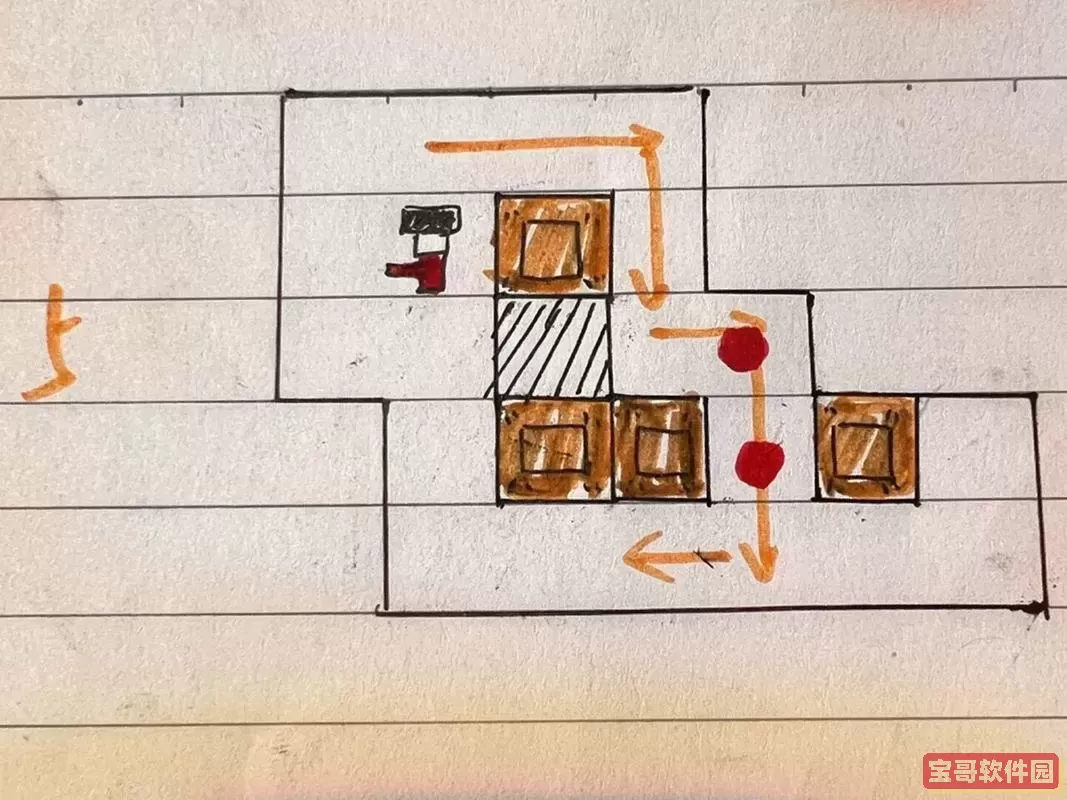 宝哥软件园